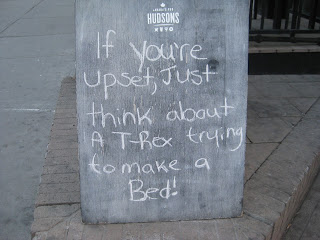 HUDSONS
If you're
upset, Just
think about
A T-Rex trying
to make a
Bed!